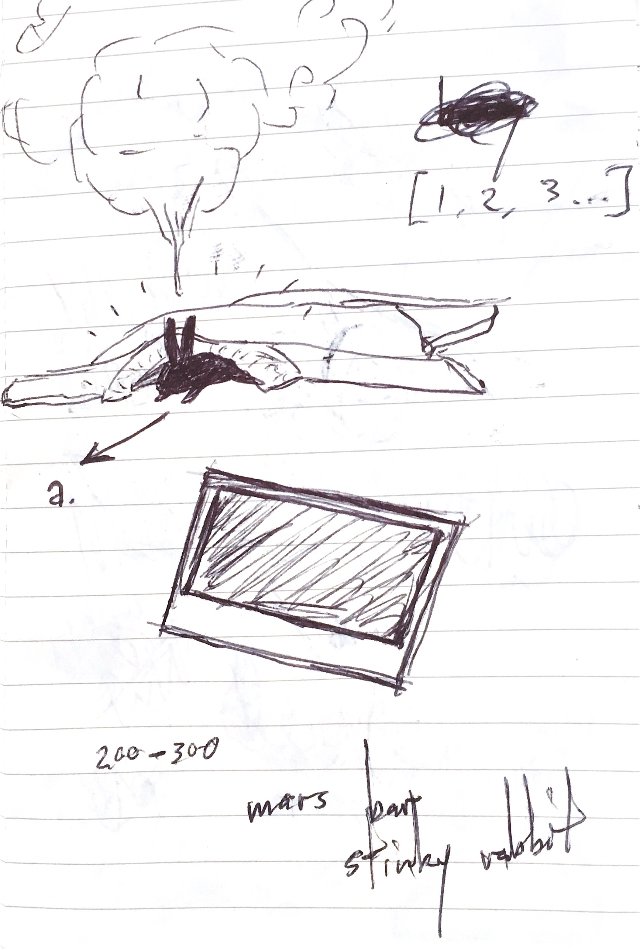 [1, 2, 3...]
a.
200-300
mars
stinky rabbit